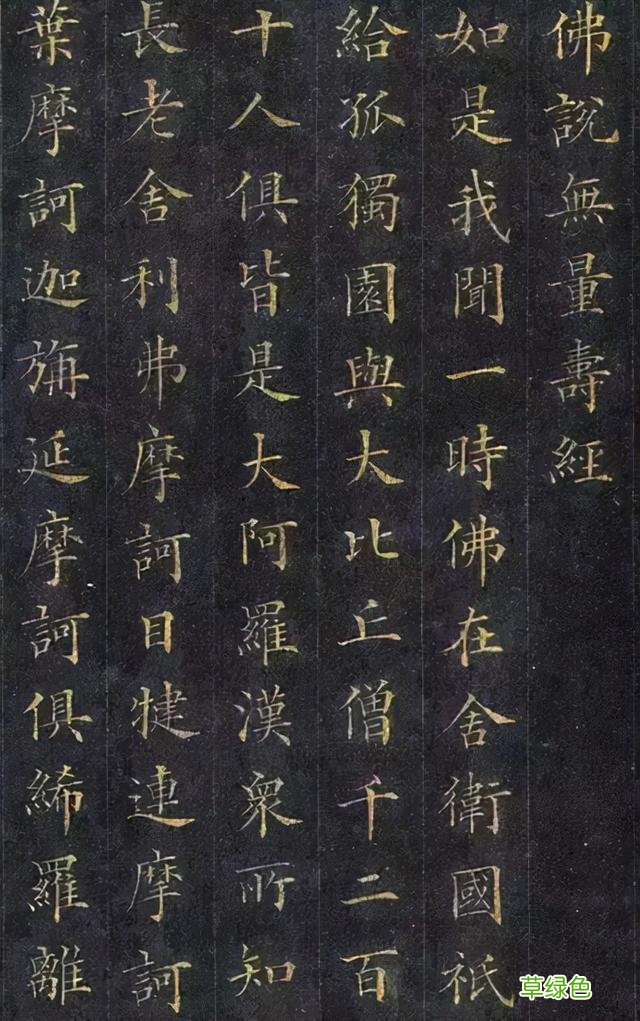 佛說無量壽經
如是我聞一時佛在舍衛國祇
給孤獨園與大比丘僧千二百
十人俱皆是大阿羅漢眾所知
長老舍利弗摩訶目犍連摩訶
葉摩訶迦旃延摩訶俱絺羅離
草绿色